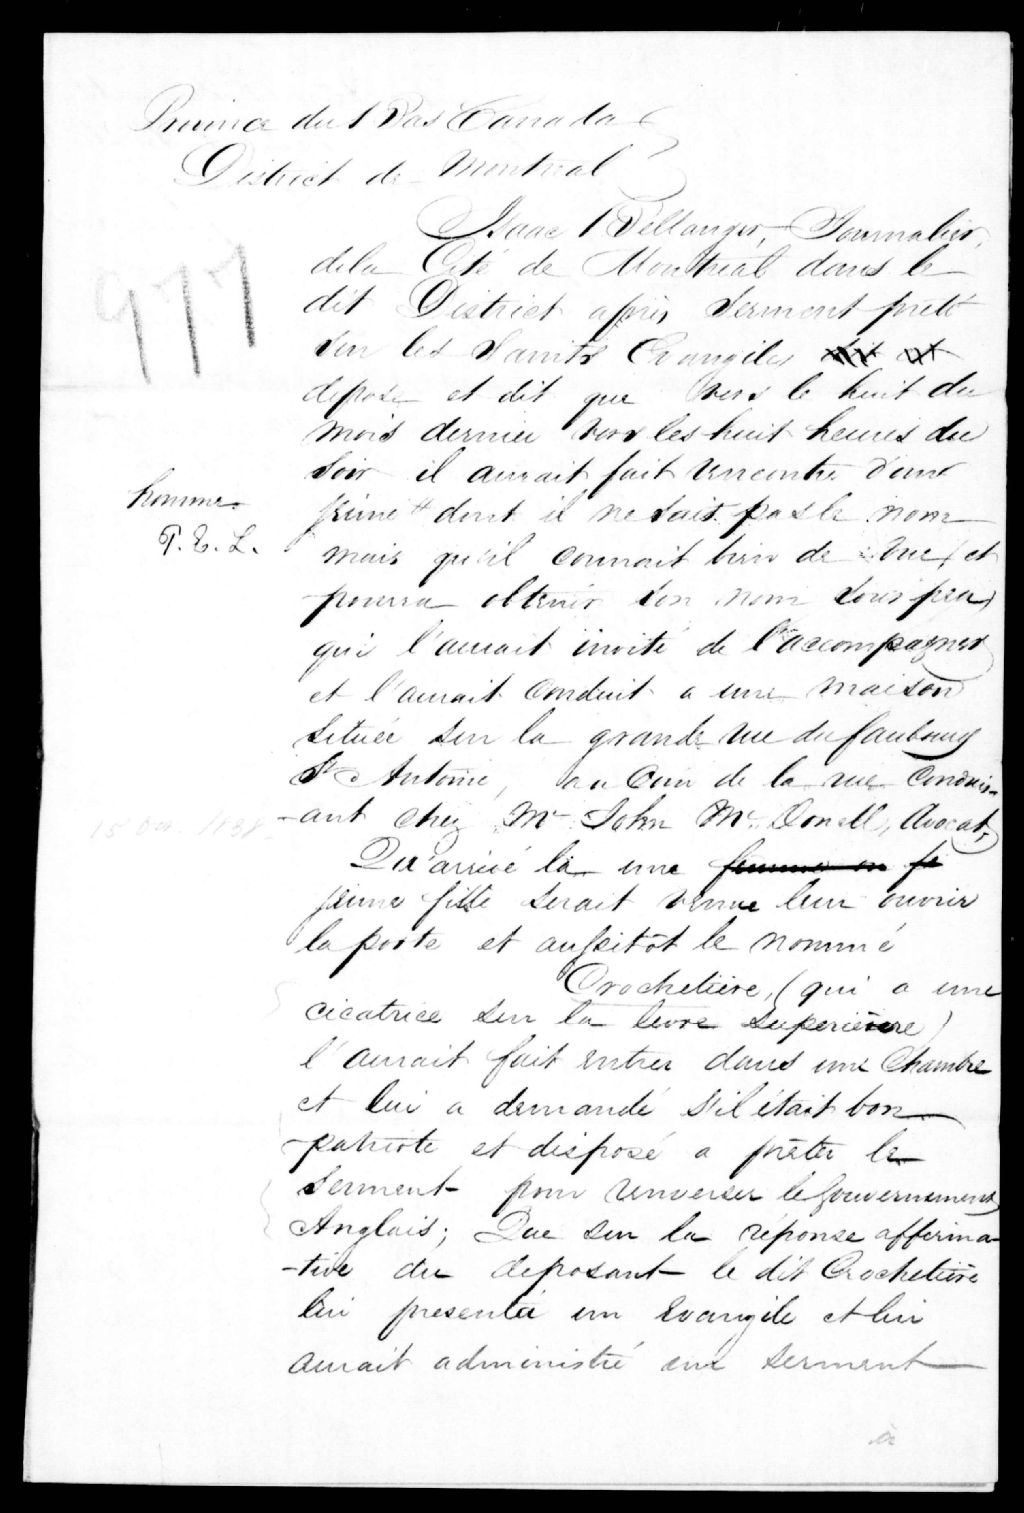 Province du Bas Canada
District de Montreal
Isaac Bellanger, Journalier,
977
dela Cité de Montreal dans le
dit District après Serment preté
Sur les Saints Evangiles
depose et dit que vers le huit du
mois dernier vers les huit heures du
Soir il aurait fait rencontre d'une
homme
jeune # dont il ne sait pas le nom
P. E. L.
mais qu'il connait bien de vue (et
pourra obtenir son nom Sous peu)
qui l'aurait invité de l'accompagner
et l'aurait Conduit a une maison
Située Sur la grande rue du faubourg
St Antoine, au Coin de la rue Conduis-
15 Dec. 1838
-ant chez Mr John Mc. Donell, Avocat,
Qu'arrivé là une femme ou fe
jeune fille serait venue leur ouvrir
la porte et aussitôt le nommé
Crochetière, (qui a une
cicatrice sur la levre superieure)
l'aurait fait entrer dans une Chambre
et lui a demandé s'il était bon
patriote et disposé a prêter le
Serment pour renverser le Gouvernement
Anglais; Que sur la réponse affirma-
-tive du deposant le dit Crochetière
lui presenta un Evangile et lui
aurait administré un serment